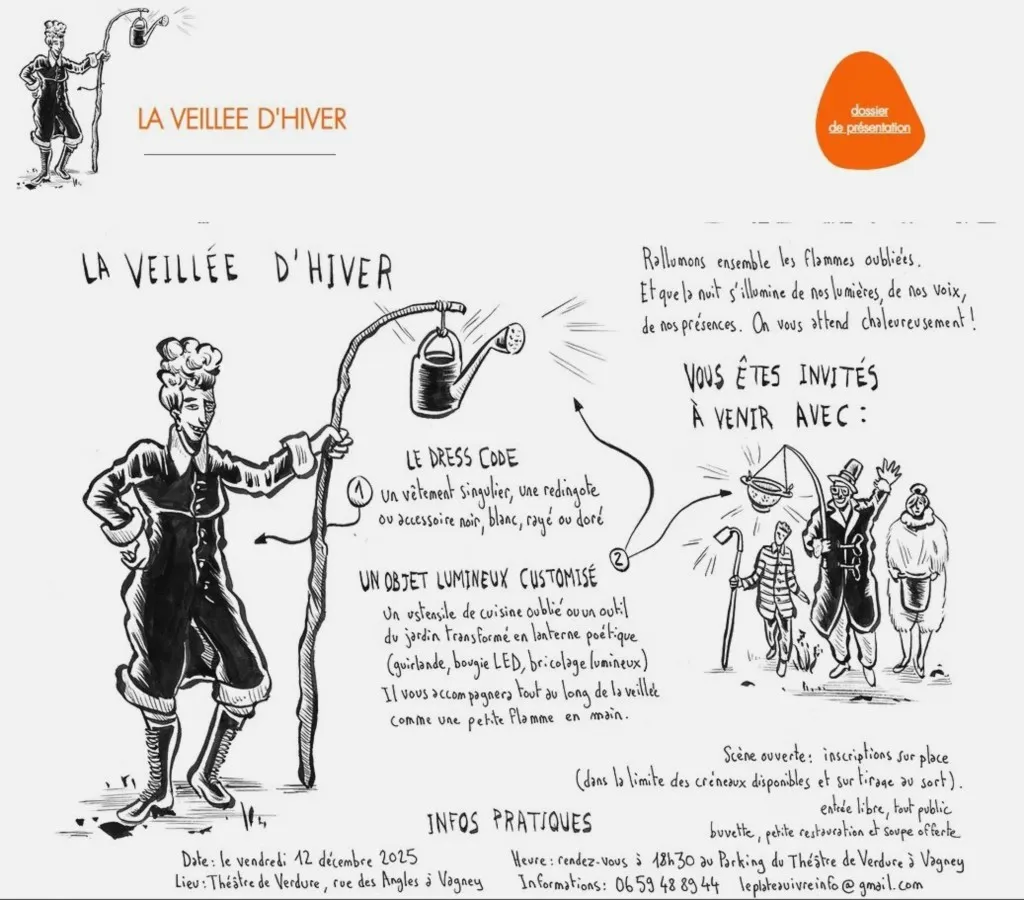 LA VEILLEE D'HIVER
dossier
de présentation
LA VEILLÉE D'HIVER
Rallumons ensemble les flammes oubliées.
Et que la nuit s'illumine de nos lumières, de nos voix,
de nos présences. On vous attend chaleureusement !
VOUS ÊTES INVITÉS
À VENIR AVEC :
LE DRESS CODE
1
Un vêtement singulier, une redingote
ou accessoire noir, blanc, rayé ou doré
2
UN OBJET LUMINEUX CUSTOMISÉ
Un ustensile de cuisine oublié ou un outil
du jardin transformé en lanterne poétique
(guirlande, bougie LED, bricolage lumineux)
Il vous accompagnera tout au long de la veillée
comme une petite flamme en main.
Scène ouverte : inscriptions sur place
(dans la limite des créneaux disponibles et sur tirage au sort).
entrée libre, tout public
buvette, petite restauration et soupe offerte
INFOS PRATIQUES
Date : le vendredi 12 décembre 2025
Lieu : Théâtre de Verdure, rue des Angles à Vagney
Heure : rendez-vous à 18h30 au Parking du Théâtre de Verdure à Vagney
Informations : 06 59 48 89 44 leplateauivreinfo@gmail.com